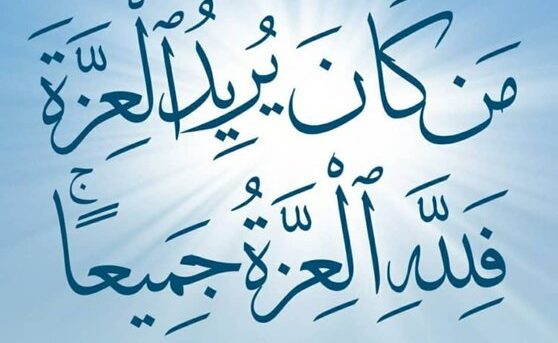 مَن كَانَ يُرِيدُ ٱلْعِزَّةَ
فَلِلَّهِ ٱلْعِزَّةُ جَمِيعًا ۚ